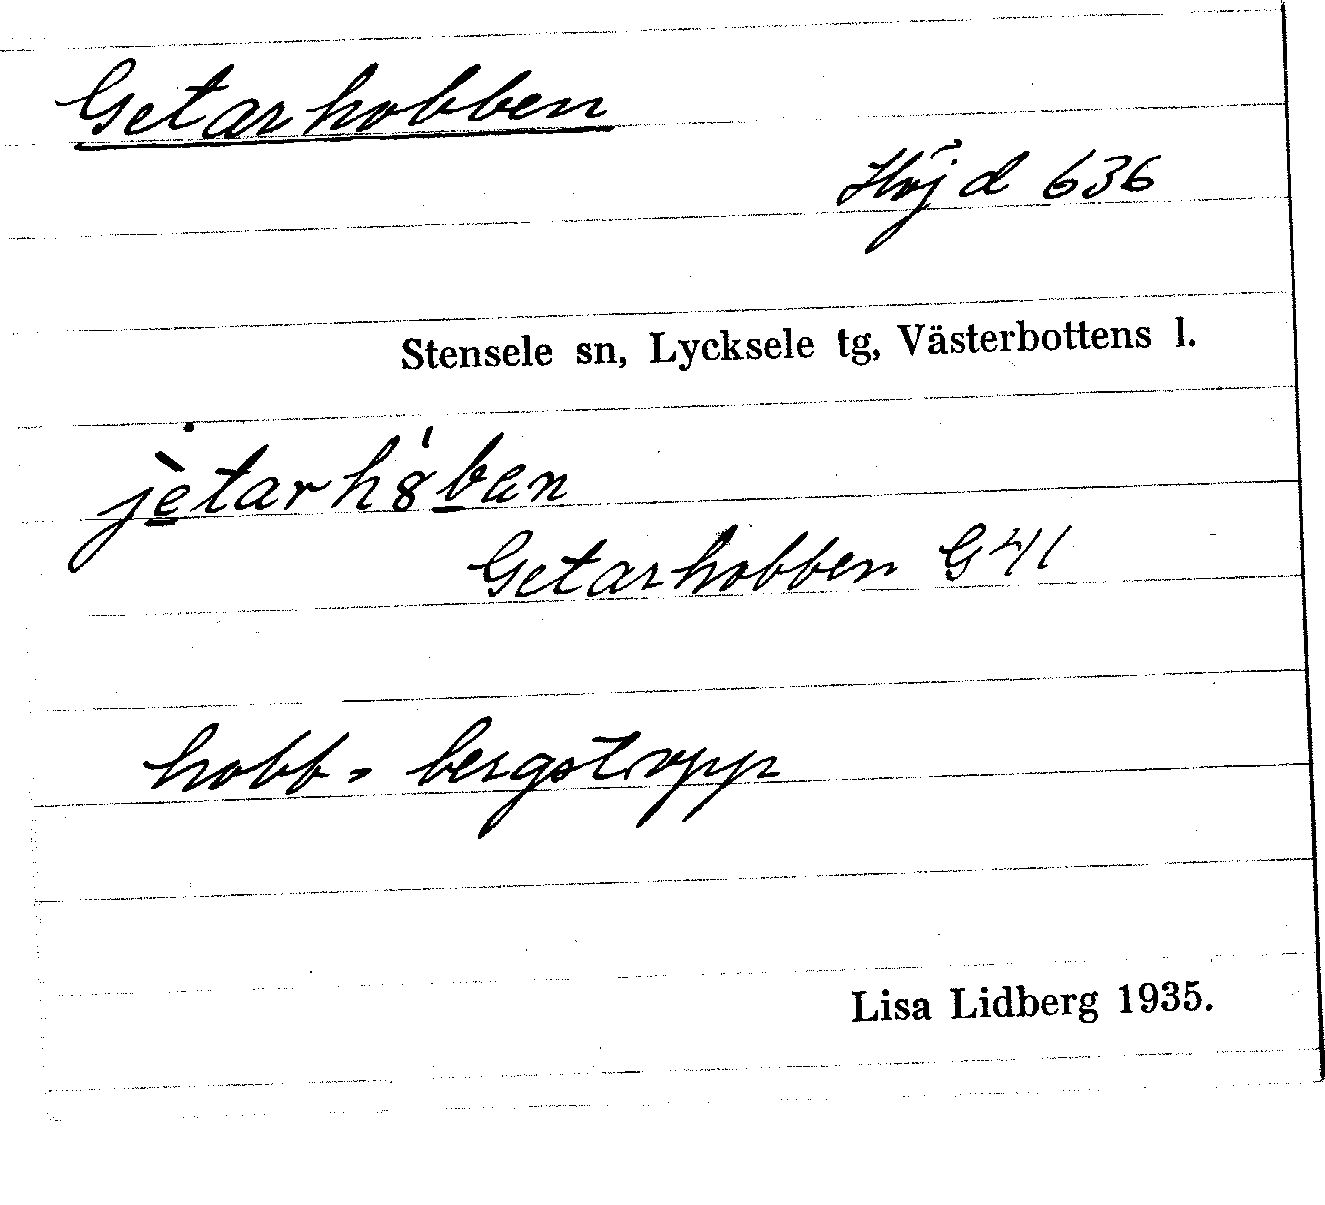 Getarhobben
Höjd 636
Stensele sn, Lycksele tg, Västerbottens l.
jè̱tarh8́ḇen
Getarhobben G41
hobb = bergstopp
Lisa Lidberg 1935.